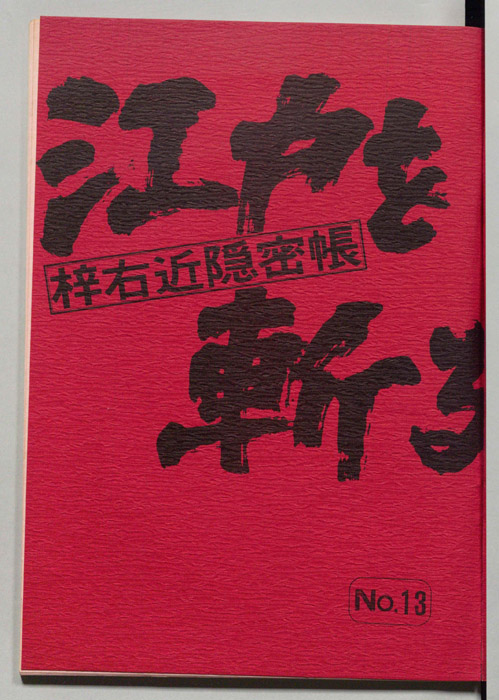 江戸を
梓右近隠密帳
斬る
No.13